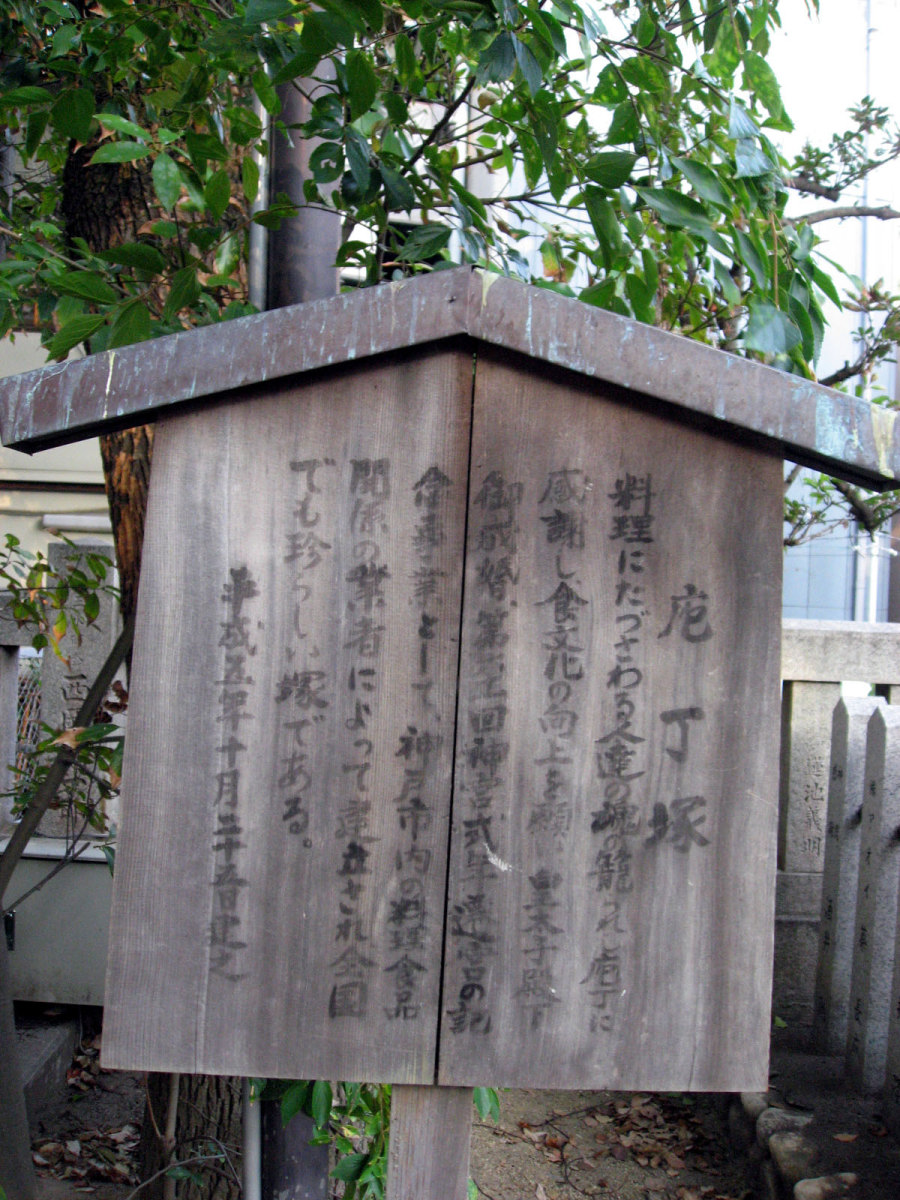 庖丁塚
料理にたづさわる人達の魂の籠れし庖丁に
感謝し、食文化の向上を願い皇太子殿下
御成婚、第六十一回神宮式年遷宮の記
念事業として、神戸市内の料理食品
関係の業者によって建立され全国
でも珍らしい塚である。
平成五年十月二十五日建之
池義明
西